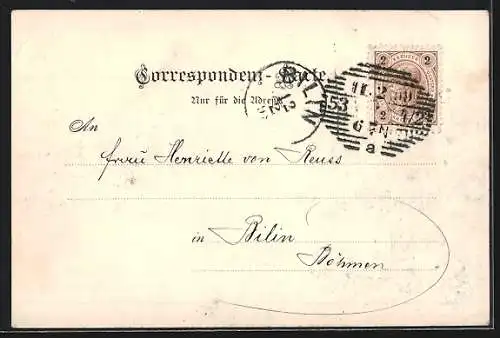 Correspondenz-Karte.
Nur für die Adresse
An
Frau Henriette von Reuss
in Bilin
Böhmen
BILIN
53
a
2 2